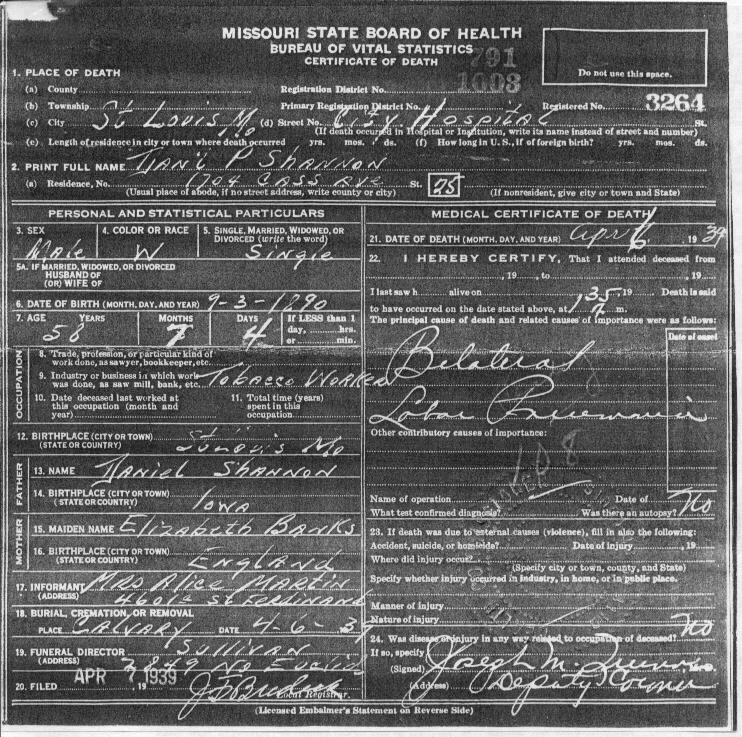 MISSOURI STATE BOARD OF HEALTH
BUREAU OF VITAL STATISTICS
CERTIFICATE OF DEATH
791
1003
Do not use this space.
1. PLACE OF DEATH
(a) County Registration District No.
(b) Township Primary Registration District No. Registered No. 3264
(c) City St Louis Mo (d) Street No. City Hospital St.
(If death occurred in Hospital or Institution, write its name instead of street and number)
(e) Length of residence in city or town where death occurred yrs. mos. ds. (f) How long in U. S., if of foreign birth? yrs. mos. ds.
2. PRINT FULL NAME Dan'l P Shannon
(a) Residence, No. 1704 Cass Ave St. 25
(Usual place of abode, if no street address, write county or city) (If nonresident, give city or town and State)
PERSONAL AND STATISTICAL PARTICULARS
3. SEX 4. COLOR OR RACE 5. SINGLE, MARRIED, WIDOWED, OR DIVORCED (write the word)
Male W Single
5A. IF MARRIED, WIDOWED, OR DIVORCED
HUSBAND OF
(OR) WIFE OF
6. DATE OF BIRTH (MONTH, DAY, AND YEAR) 9-3-1890
7. AGE YEARS MONTHS DAYS If LESS than 1 day, hrs. or min.
58 7 4
OCCUPATION
8. Trade, profession, or particular kind of work done, as sawyer, bookkeeper, etc.
9. Industry or business in which work was done, as saw mill, bank, etc. Tobacco Worker
10. Date deceased last worked at this occupation (month and year)
11. Total time (years) spent in this occupation
12. BIRTHPLACE (CITY OR TOWN) (STATE OR COUNTRY) St Louis Mo
FATHER
13. NAME Daniel Shannon
14. BIRTHPLACE (CITY OR TOWN) (STATE OR COUNTRY) Iowa
MOTHER
15. MAIDEN NAME Elizabeth Banks
16. BIRTHPLACE (CITY OR TOWN) (STATE OR COUNTRY) England
17. INFORMANT Mrs Alice Martin
(ADDRESS) St Ferdinand
18. BURIAL, CREMATION, OR REMOVAL
PLACE Calvary DATE 4-6-39
19. FUNERAL DIRECTOR Sullivan
(ADDRESS) 2849 No Euclid
20. FILED APR 7 1939, 19
Local Registrar.
MEDICAL CERTIFICATE OF DEATH
21. DATE OF DEATH (MONTH, DAY, AND YEAR) Apr 6 1939
22. I HEREBY CERTIFY, That I attended deceased from
, 19 , to , 19
I last saw h alive on , 19 Death is said
to have occurred on the date stated above, at 1 35 m.
The principal cause of death and related causes of importance were as follows:
Date of onset
Bilateral
Lobar Pneumonia
Other contributory causes of importance:
108
Name of operation Date of
What test confirmed diagnosis? Was there an autopsy? No
23. If death was due to external causes (violence), fill in also the following:
Accident, suicide, or homicide? Date of injury , 19
Where did injury occur?
(Specify city or town, county, and State)
Specify whether injury occurred in industry, in home, or in public place.
Manner of injury
Nature of injury
24. Was disease or injury in any way related to occupation of deceased? No
If so, specify
(Signed) Joseph M.
(Address) Deputy Coroner
(Licensed Embalmer's Statement on Reverse Side)